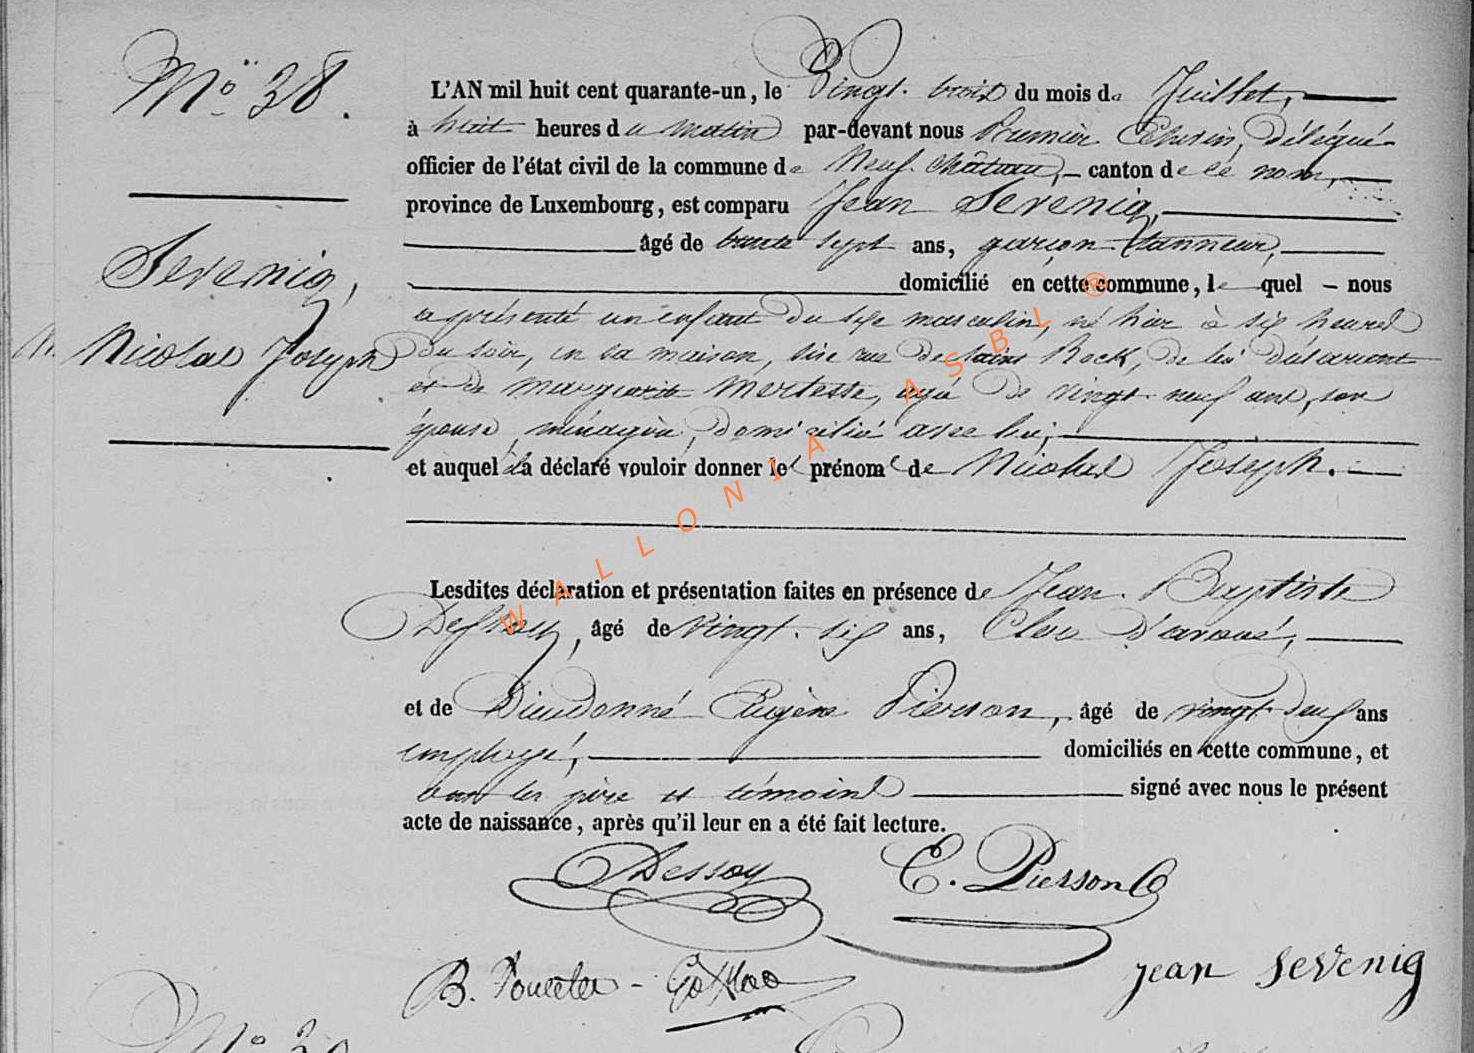 N° 38.
Sevenig,
Nicolas Joseph
L'AN mil huit cent quarante-un, le Vingt-trois du mois de Juillet,
à huit heures du matin par-devant nous Premier Echevin, délégué
officier de l'état civil de la commune de Neufchâteau, canton de ce nom,
province de Luxembourg, est comparu Jean Sevenig,
âgé de trente sept ans, garçon tanneur,
domicilié en cette commune, lequel nous
a présenté un enfant du sexe masculin, né hier à six heures
du soir, en sa maison, sise rue de saint Rock, de lui déclarant
et de Marguerite Mertesse, agée de vingt neuf ans, son
épouse, ménagère, domiciliée avec lui,
et auquel il a déclaré vouloir donner les prénoms de Nicolas Joseph.
Lesdites déclaration et présentation faites en présence de Jean Baptiste
Dessoy, âgé de vingt-six ans, Clerc d'avoué,
et de Dieudonné Eugène Pierson, âgé de vingt deux ans
employé, domiciliés en cette commune, et
ont les père et témoins signé avec nous le présent
acte de naissance, après qu'il leur en a été fait lecture.
Dessoy E. Pierson
B.
jean Sevenig
WALLONIA ASBL ®